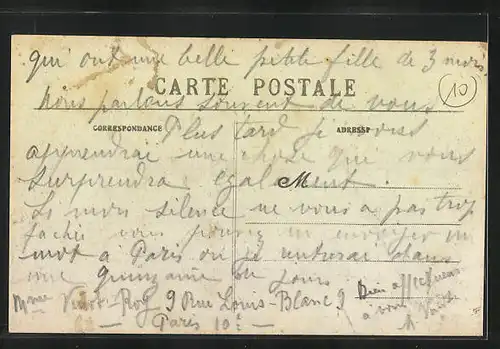 qui ont une belle petite fille de 3 mois
CARTE POSTALE
10
Nous parlons souvent de vous
CORRESPONDANCE
ADRESSE
Plus tard je vous
apprendrai une chose que vous
surprendra également.
M
mon silence ne vous a pas trop
fachée vous pouvez m envoyer un
mot à Paris où je rentrerai dans
une quinzaine de jours
Bien affectueus
à vous
Mme Roy 9 Rue Louis-Blanc 9
— Paris 10e —